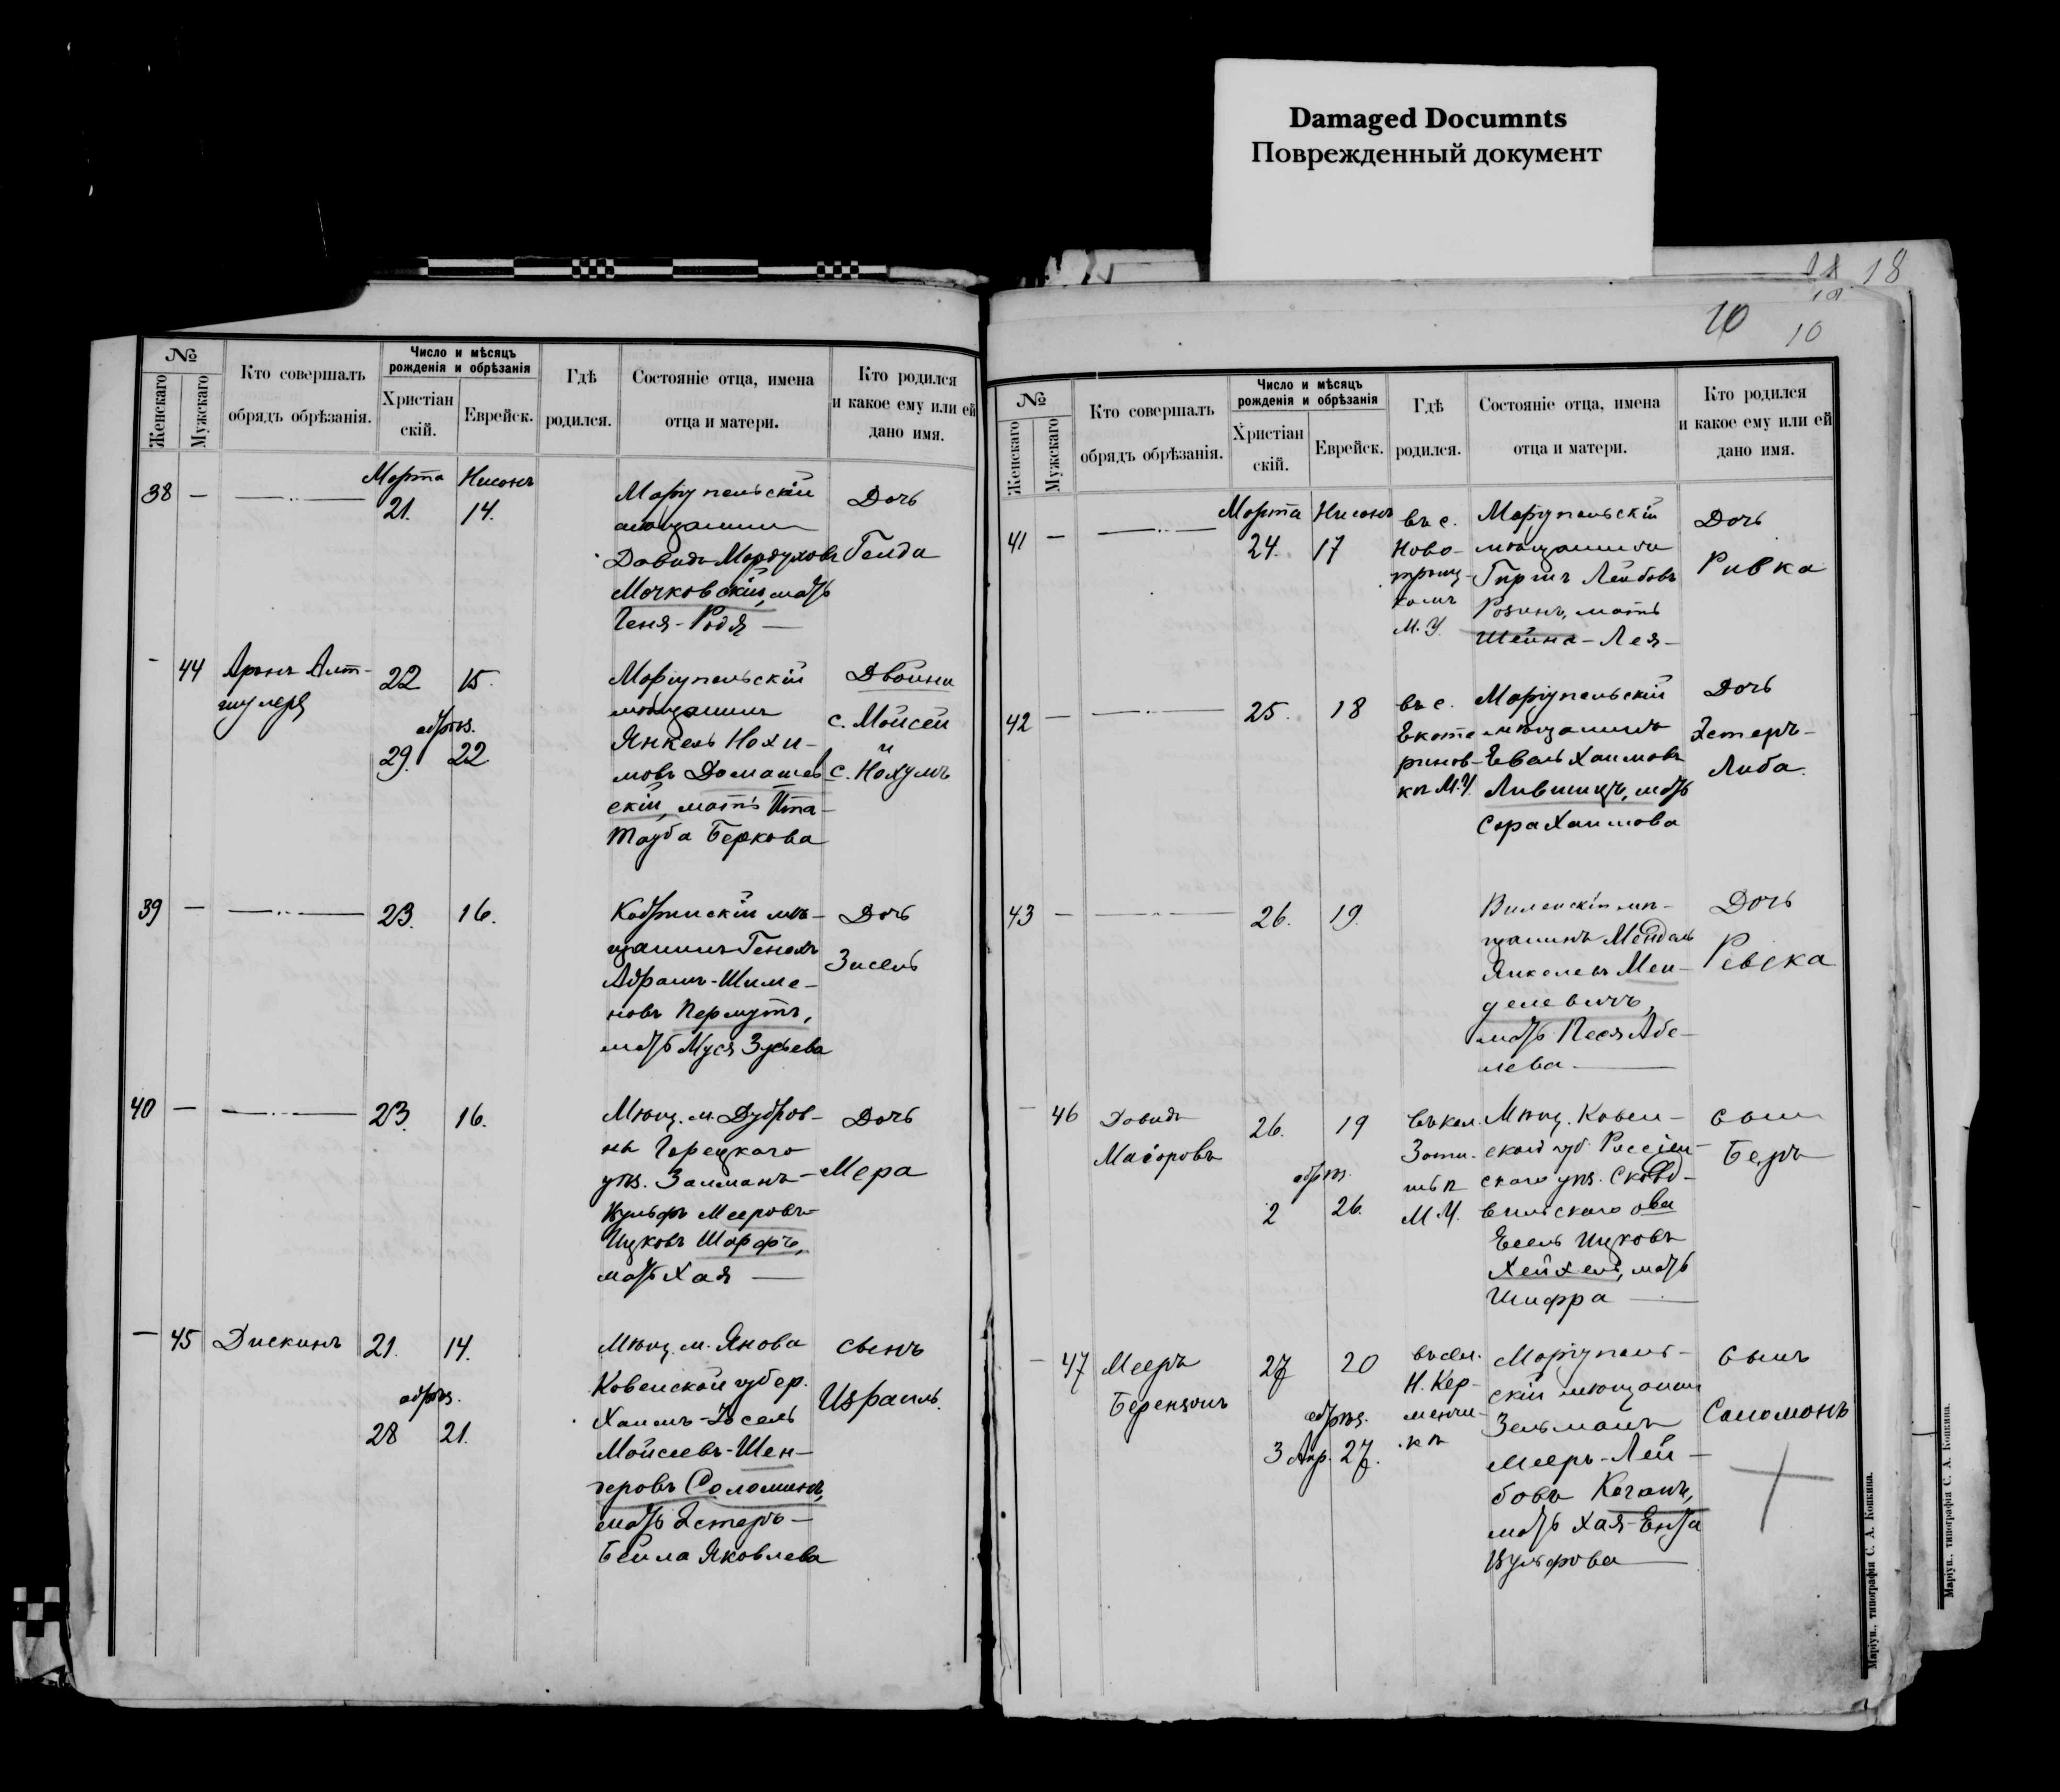 Damaged Documnts
Поврежденный документ
18 18
10 10
№
Женскаго
Мужскаго
Кто совершалъ
обрядъ обрѣзанія.
Число и мѣсяцъ
рожденія и обрѣзанія
Христіан
скій.
Еврейск.
Гдѣ
родился.
Состояніе отца, имена
отца и матери.
Кто родился
и какое ему или ей
дано имя.
38 —
Марта Нисонъ
21. 14.
Маріупольскій
мѣщанинъ
Давидъ Мордуховъ
Мочковскій, мать
Геня-Родя —
Дочь
Голда
- 44
Аронъ Альт-
шулеръ
22 15.
обрѣз.
29. 22
Маріупольскій
мѣщанинъ
Янкель Нохи-
мовъ Домашев-
скій, мать Ита-
Тауба Беркова
Двойни
с. Мойсей
и
с. Нохумъ
39 —
23. 16.
Кобринскій мѣ-
щанинъ Генохъ
Абрамъ-Шиме-
новъ Пермутъ,
мать Муся Зусьева
Дочь
Зисель
40 —
23. 16.
Мѣщ. м. Дубров-
ны Горецкаго
уѣз. Залманъ-
Вульфъ Мееровъ-
Ицковъ Шарфъ,
мать Хая —
Дочь
Мера
— 45
Дискинъ
21. 14.
обрѣз.
28 21.
Мѣщ. м. Янова
Ковенской губер.
Хаимъ-Іосель
Мойсеевъ-Шен-
деровъ Соломинъ,
мать Эстеръ-
Бейла Яковлева
сынъ
Израиль.
№
Женскаго
Мужскаго
Кто совершалъ
обрядъ обрѣзанія.
Число и мѣсяцъ
рожденія и обрѣзанія
Христіан
скій.
Еврейск.
Гдѣ
родился.
Состояніе отца, имена
отца и матери.
Кто родился
и какое ему или ей
дано имя.
41 —
Марта Нисонъ
24. 17
въ с.
Ново-
троиц-
комъ
М. У.
Маріупольскій
мѣщанинъ
Гиршъ Лейбовъ
Розинъ, мать
Шейна-Лея-
Дочь
Ривка
42 —
25. 18
въ с.
Екате
ринов-
кѣ М. У.
Маріупольскій
мѣщанинъ
Евель Хаимовъ
Лившицъ, мать
Сора Хаимова
Дочь
Эстеръ-
Либа.
43 —
26. 19.
Виленскій мѣ-
щанинъ Мендель
Янкелевъ Мен-
делевичъ,
мать Песя Абе-
лева —
Дочь
Ревека
— 46
Давидъ
Маіоровъ
26. 19
обрѣз.
2 26.
въ кол.
М. У.
Мѣщ. Ковен-
ской губ. Россіен-
скаго уѣз. Сковд-
вильскаго о-ва
Есель Ицковъ
Хейхель, мать
Шифра —
сынъ
Беръ
— 47
Мееръ
Беренцонъ
27 20
обрѣз.
3 Апр. 27.
въ сел.
Н. Кер-
менчи-
кѣ
Маріуполь-
скій мѣщанинъ
Зельманъ
Мееръ-Лей-
бовъ Коганъ,
мать Хая-Ента
Вульфова —
сынъ
Соломонъ
Маріуп., типографія С. А. Копкина.
Маріуп., типографія С. А. Копкина.